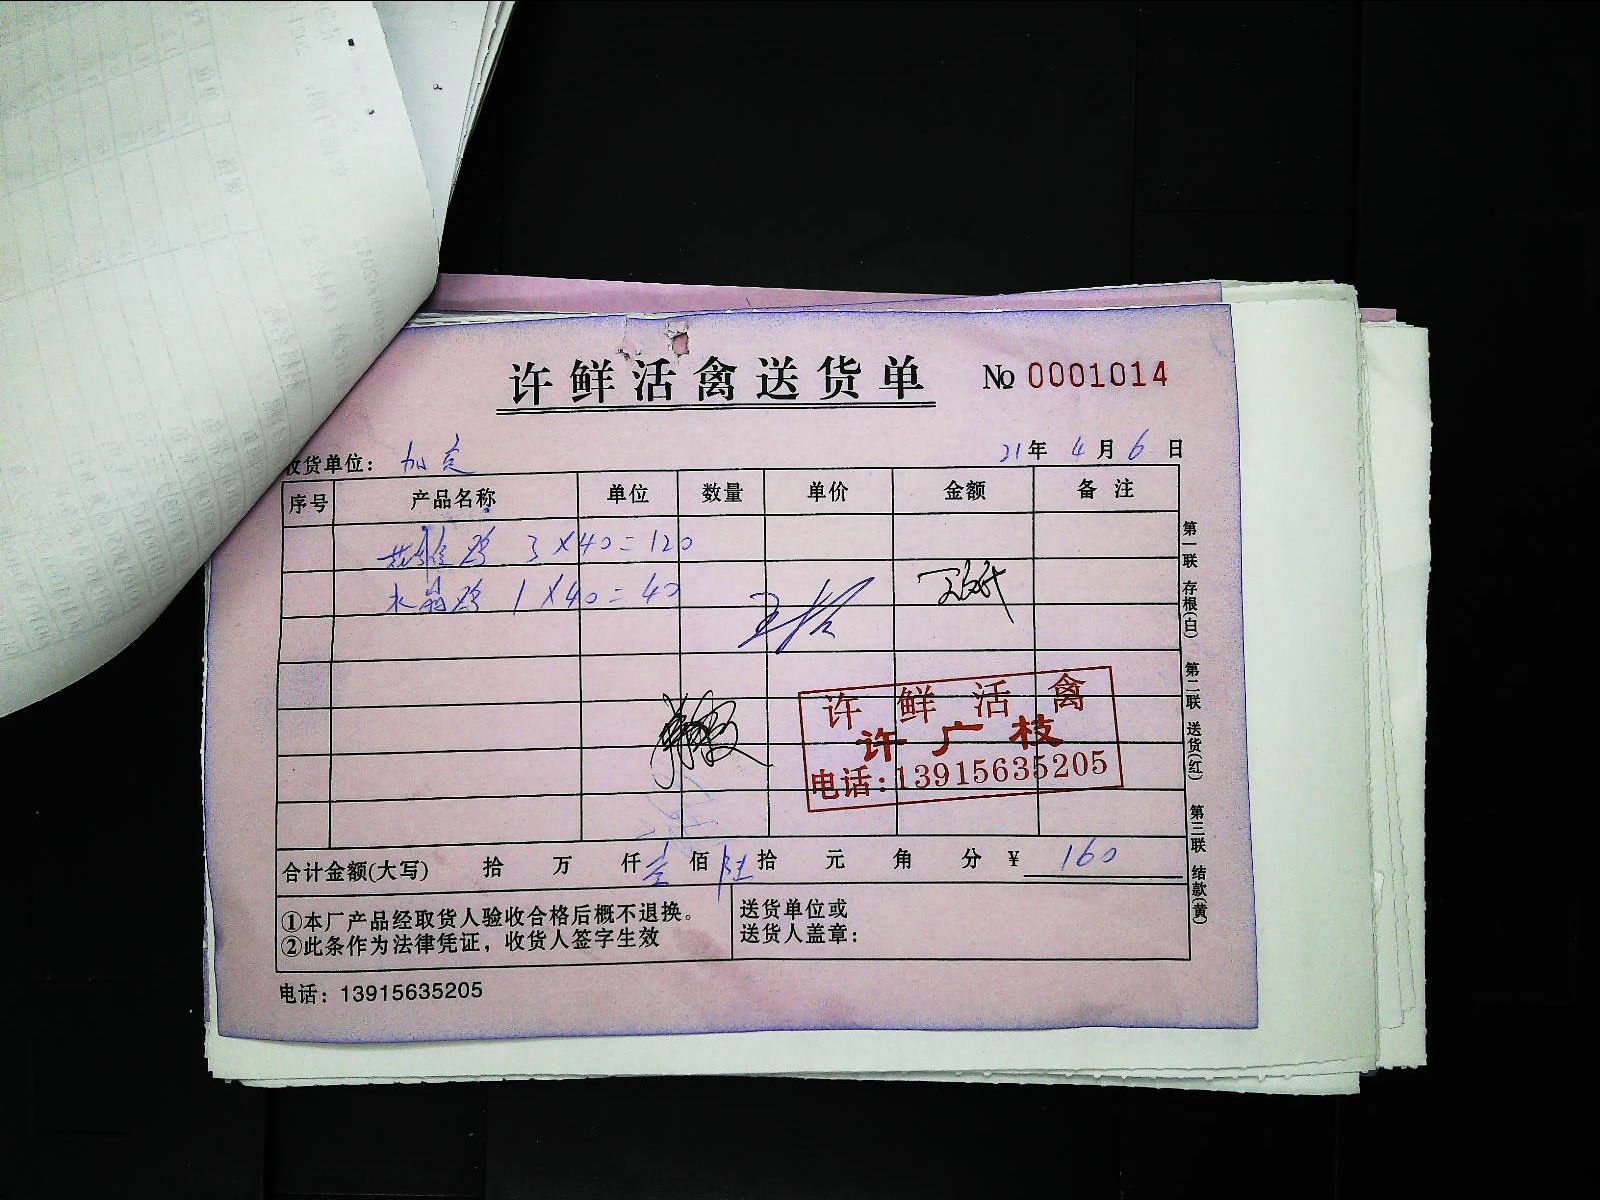 许鲜活禽送货单 № 0001014
收货单位： 加 21年 4月 6日
序号 产品名称 单位 数量 单价 金额 备注
鸡 3×40=120
鸡 1×40=40
许鲜活禽
许广枝
电话:13915635205
合计金额(大写) 拾 万 仟 壹佰 陆拾 元 角 分 ¥ 160
①本厂产品经取货人验收合格后概不退换。
②此条作为法律凭证，收货人签字生效
送货单位或
送货人盖章：
电话：13915635205
第一联 存根(白)
第二联 送货(红)
第三联 结款(黄)